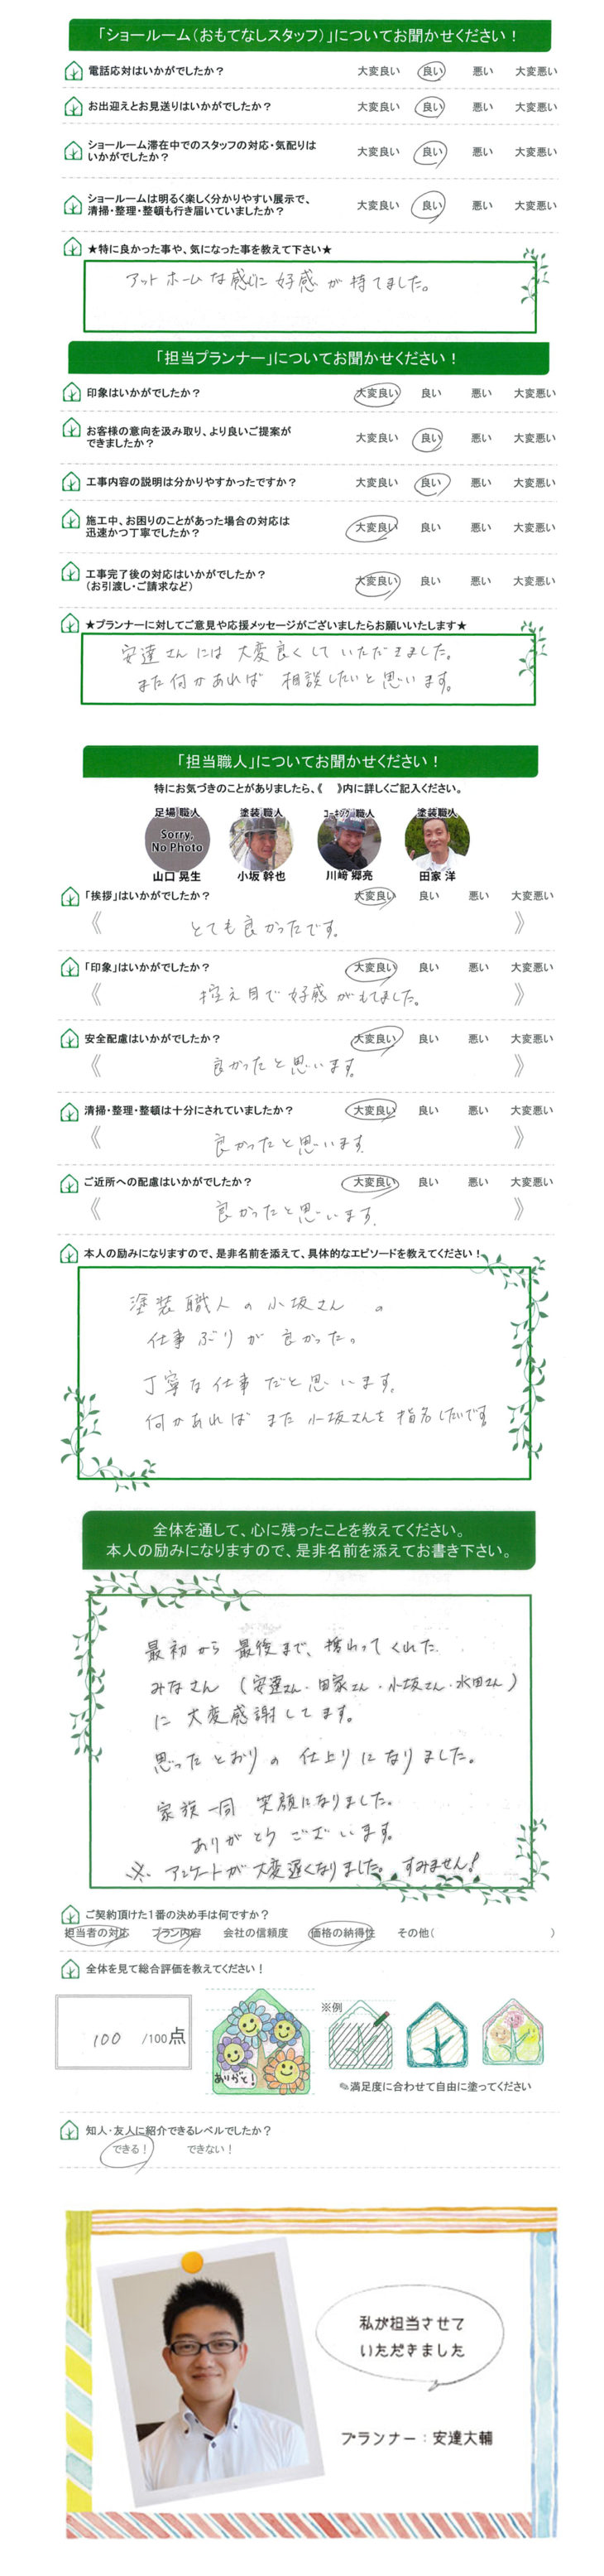 「ショールーム(おもてなしスタッフ)」についてお聞かせください！
電話応対はいかがでしたか？ 大変良い 良い 悪い 大変悪い
お出迎えとお見送りはいかがでしたか？ 大変良い 良い 悪い 大変悪い
ショールーム滞在中でのスタッフの対応・気配りは
いかがでしたか？ 大変良い 良い 悪い 大変悪い
ショールームは明るく楽しく分かりやすい展示で、
清掃・整理・整頓も行き届いていましたか？ 大変良い 良い 悪い 大変悪い
★特に良かった事や、気になった事を教えて下さい★
アットホームな感じに好感が持てました。
「担当プランナー」についてお聞かせください！
印象はいかがでしたか？ 大変良い 良い 悪い 大変悪い
お客様の意向を汲み取り、より良いご提案が
できましたか？ 大変良い 良い 悪い 大変悪い
工事内容の説明は分かりやすかったですか？ 大変良い 良い 悪い 大変悪い
施工中、お困りのことがあった場合の対応は
迅速かつ丁寧でしたか？ 大変良い 良い 悪い 大変悪い
工事完了後の対応はいかがでしたか？
(お引渡し・ご請求など) 大変良い 良い 悪い 大変悪い
★プランナーに対してご意見や応援メッセージがございましたらお願いいたします★
安達さんには大変良くしていただきました。
また何かあれば相談したいと思います。
「担当職人」についてお聞かせください！
特にお気づきのことがありましたら、《 》内に詳しくご記入ください。
足場 職人 塗装 職人 コーキング 職人 塗装職人
Sorry,
No Photo
山口 晃生 小坂 幹也 川﨑 郷亮 田家 洋
「挨拶」はいかがでしたか？ 大変良い 良い 悪い 大変悪い
《 とても良かったです。 》
「印象」はいかがでしたか？ 大変良い 良い 悪い 大変悪い
《 控え目で好感がもてました。 》
安全配慮はいかがでしたか？ 大変良い 良い 悪い 大変悪い
《 良かったと思います。 》
清掃・整理・整頓は十分にされていましたか？ 大変良い 良い 悪い 大変悪い
《 良かったと思います。 》
ご近所への配慮はいかがでしたか？ 大変良い 良い 悪い 大変悪い
《 良かったと思います。 》
本人の励みになりますので、是非名前を添えて、具体的なエピソードを教えてください！
塗装職人の小坂さんの
仕事ぶりが良かった。
丁寧な仕事だと思います。
何かあればまた小坂さんを指名したいです
全体を通して、心に残ったことを教えてください。
本人の励みになりますので、是非名前を添えてお書き下さい。
最初から最後まで、携わってくれた
みなさん（安達さん・田家さん・小坂さん・水田さん）
に大変感謝してます。
思ったとおりの仕上りになりました。
家族一同笑顔になりました。
ありがとうございます。
※ アンケートが大変遅くなりました。すみません！
ご契約頂けた1番の決め手は何ですか？
担当者の対応 プラン内容 会社の信頼度 価格の納得性 その他( )
全体を見て総合評価を教えてください！
100 /100点
ありがと！
※例
✎満足度に合わせて自由に塗ってください
知人・友人に紹介できるレベルでしたか？
できる！ できない！
私が担当させて
いただきました
プランナー：安達大輔